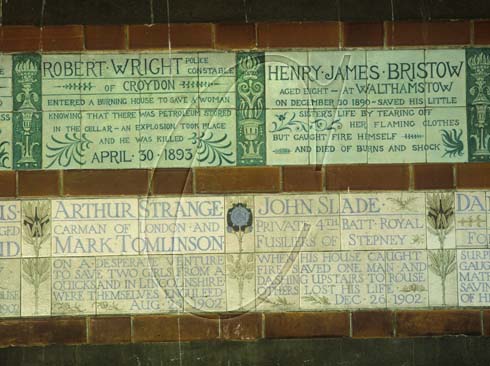 ROBERT · WRIGHT POLICE CONSTABLE
OF CROYDON
ENTERED A BURNING HOUSE TO SAVE A WOMAN
KNOWING THAT THERE WAS PETROLEUM STORED
IN THE CELLAR - AN EXPLOSION TOOK PLACE
AND HE WAS KILLED
APRIL · 30 · 1893
HENRY · JAMES · BRISTOW
AGED EIGHT - AT WALTHAMSTOW
ON DECEMBER 30 1890 - SAVED HIS LITTLE
SISTER'S LIFE BY TEARING OFF
HER FLAMING CLOTHES
BUT CAUGHT FIRE HIMSELF
AND DIED OF BURNS AND SHOCK
ARTHUR STRANGE
CARMAN OF LONDON · AND
MARK TOMLINSON
ON A DESPERATE VENTURE
TO SAVE TWO GIRLS FROM A
QUICKSAND IN LINCOLNSHIRE
WERE THEMSELVES ENGULFED
AUG 1902
JOHN SLADE
PRIVATE 4th BATT. ROYAL
FUSILIERS OF STEPNEY
WHEN HIS HOUSE CAUGHT
FIRE SAVED ONE MAN AND
DASHING UPSTAIRS TO ROUSE
OTHERS LOST HIS LIFE
DEC · 26 · 1902